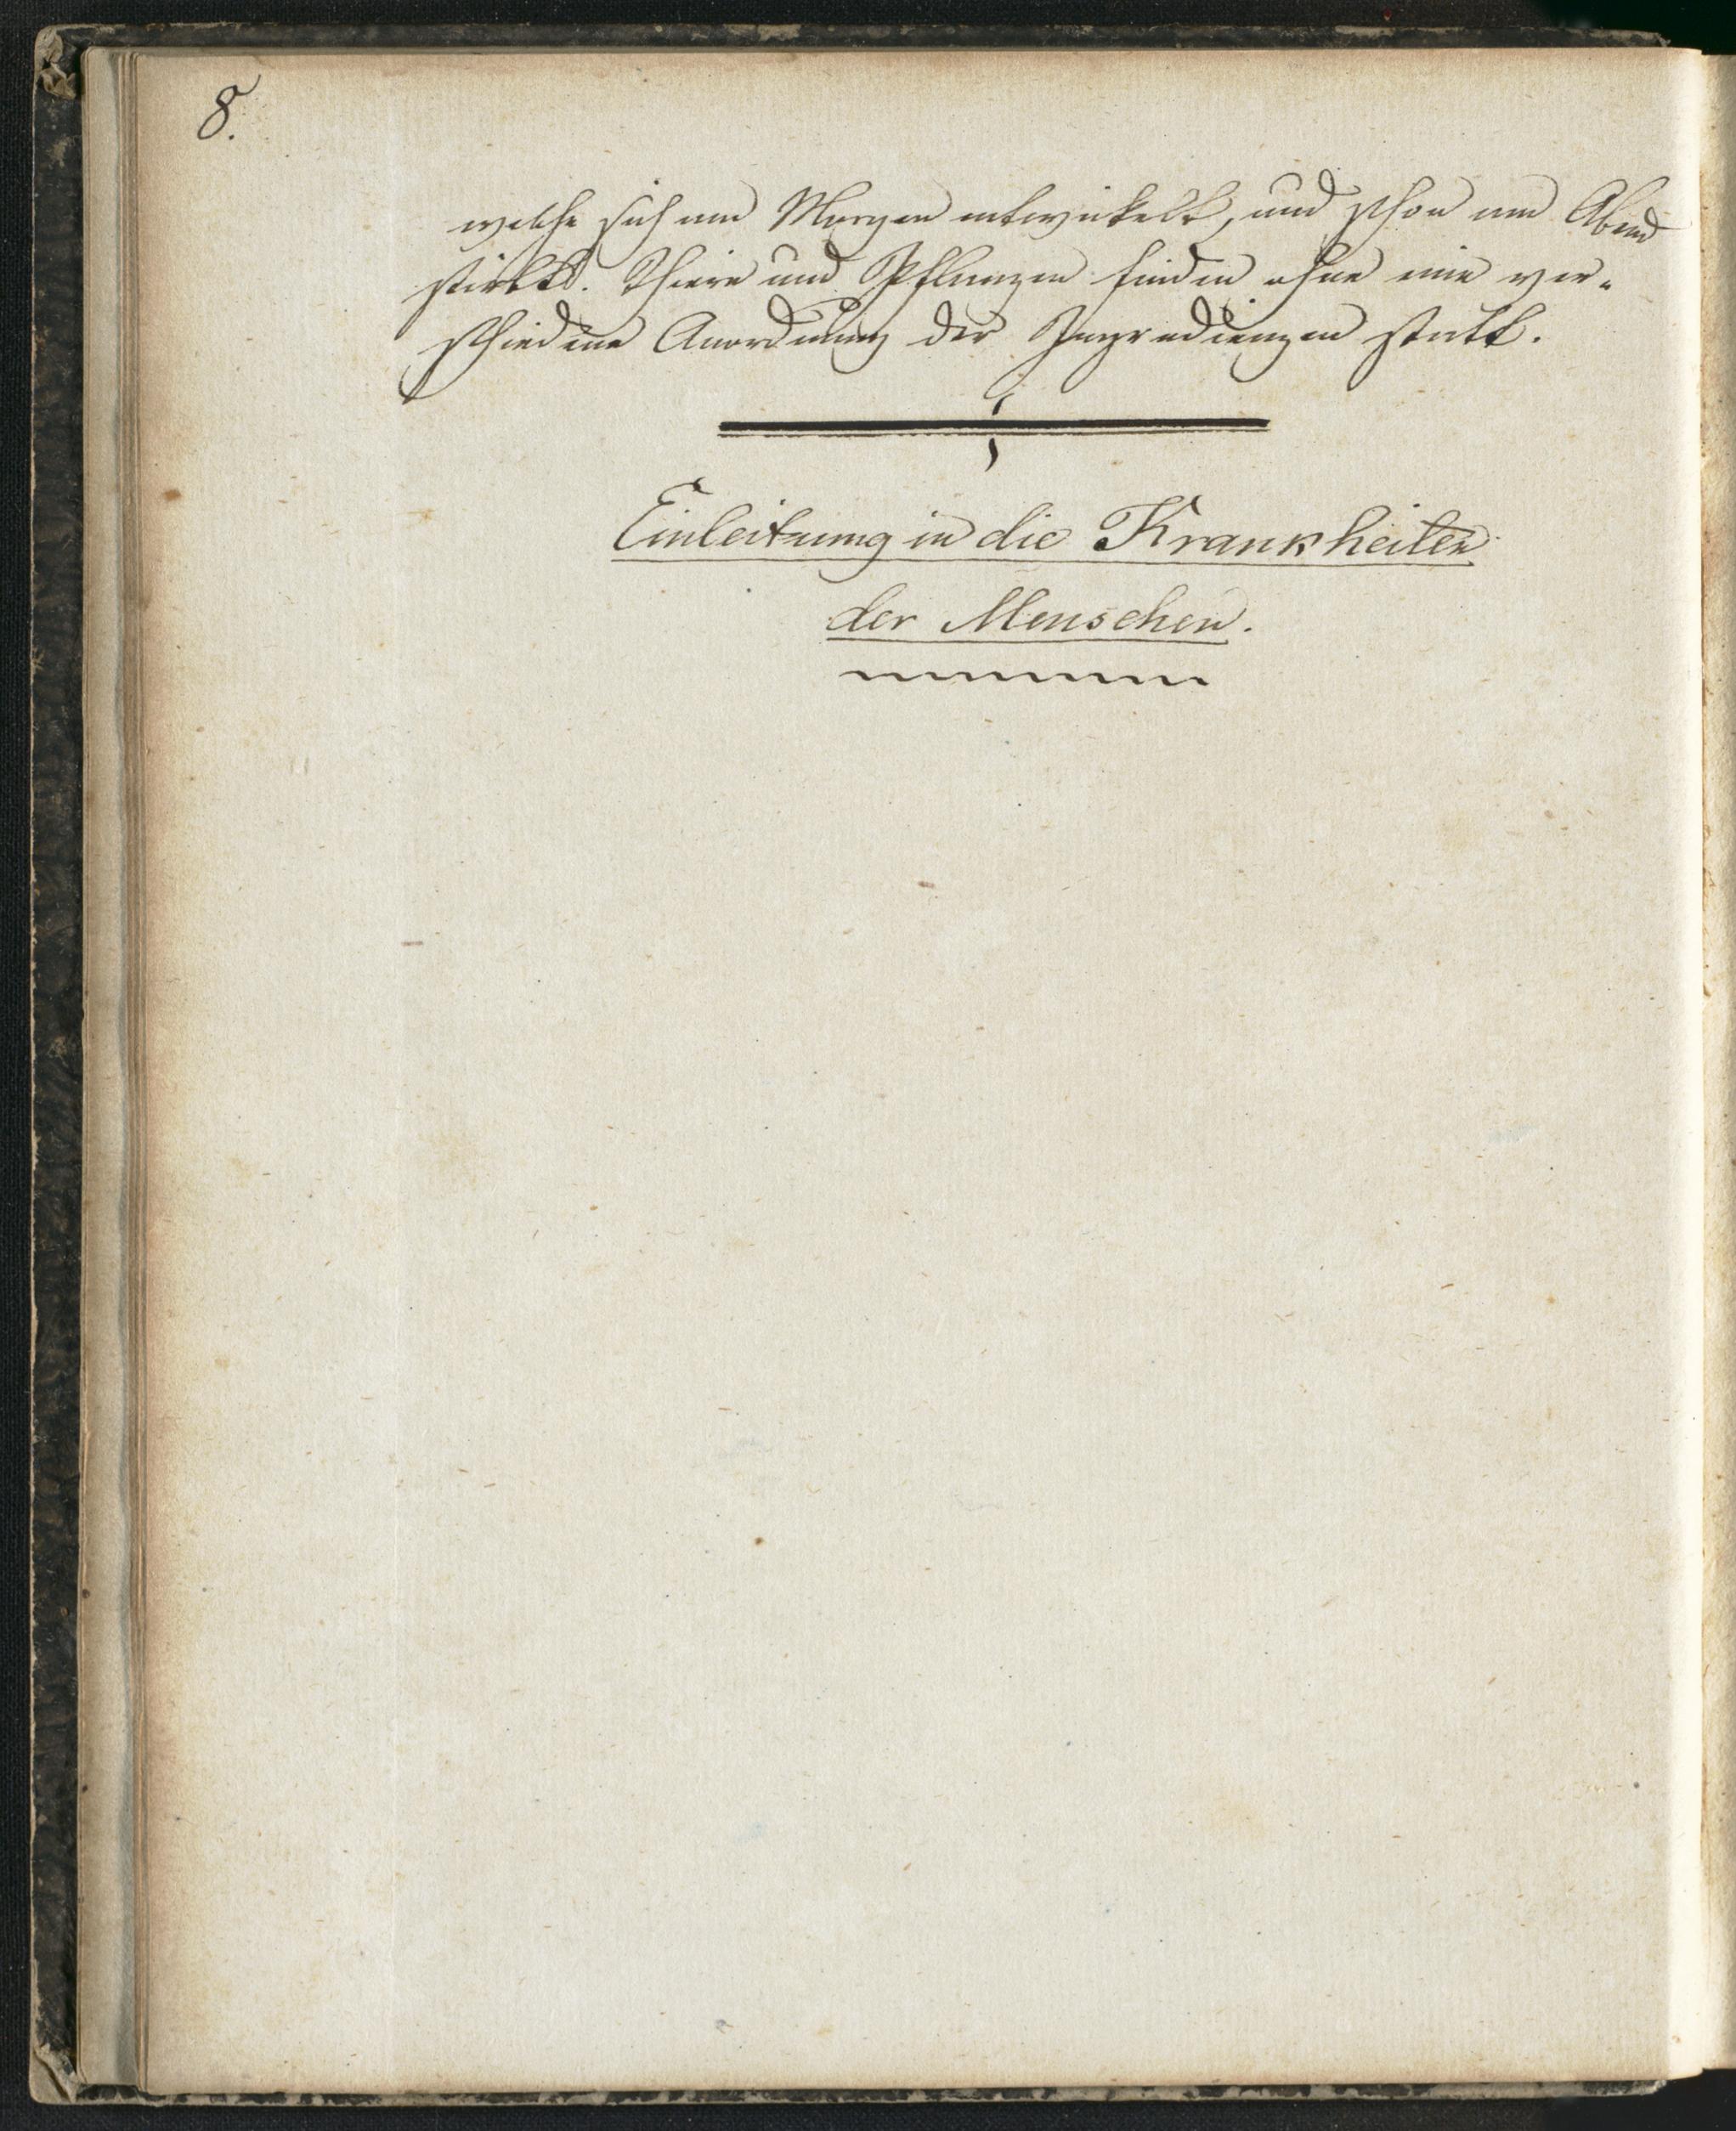 8.
welche sich am Morgen entwickelt, und schon am Abend
stirbt. Thiere und Pflanzen finden ohne eine ver-
schiedene Anordnung der Ingredienzen statt.
Einleitung in die Krankheiten
der Menschen.